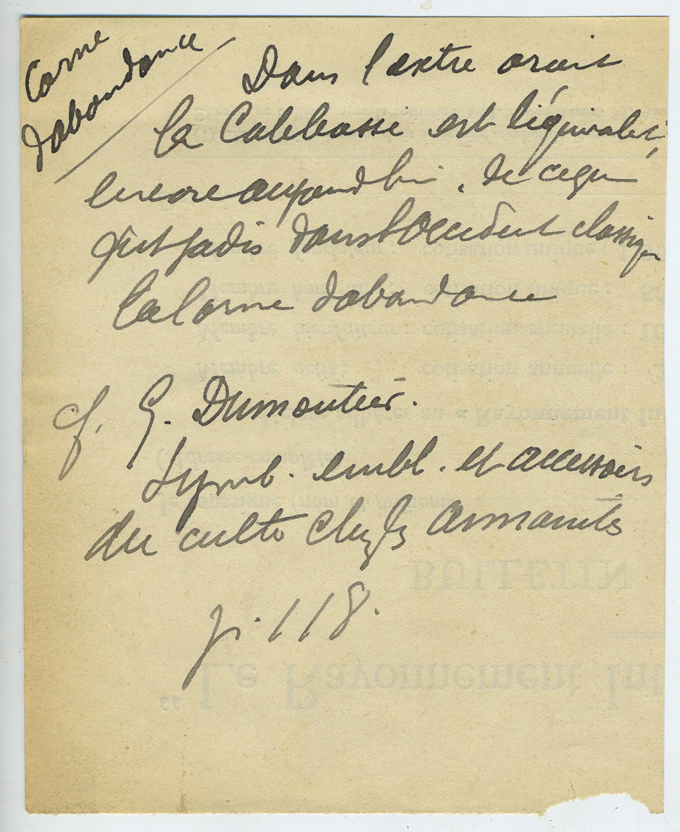 Corne
dabondance
Dans l'extre orient
la Calebasse est l'équivalent
encore aujourd'hui, de ce que
fut jadis dans l'Occident classique
la Corne dabondance
cf. G. Dumoutier.
Symb. embl. et accessoires
du culte chez les Annamites
p. 118.